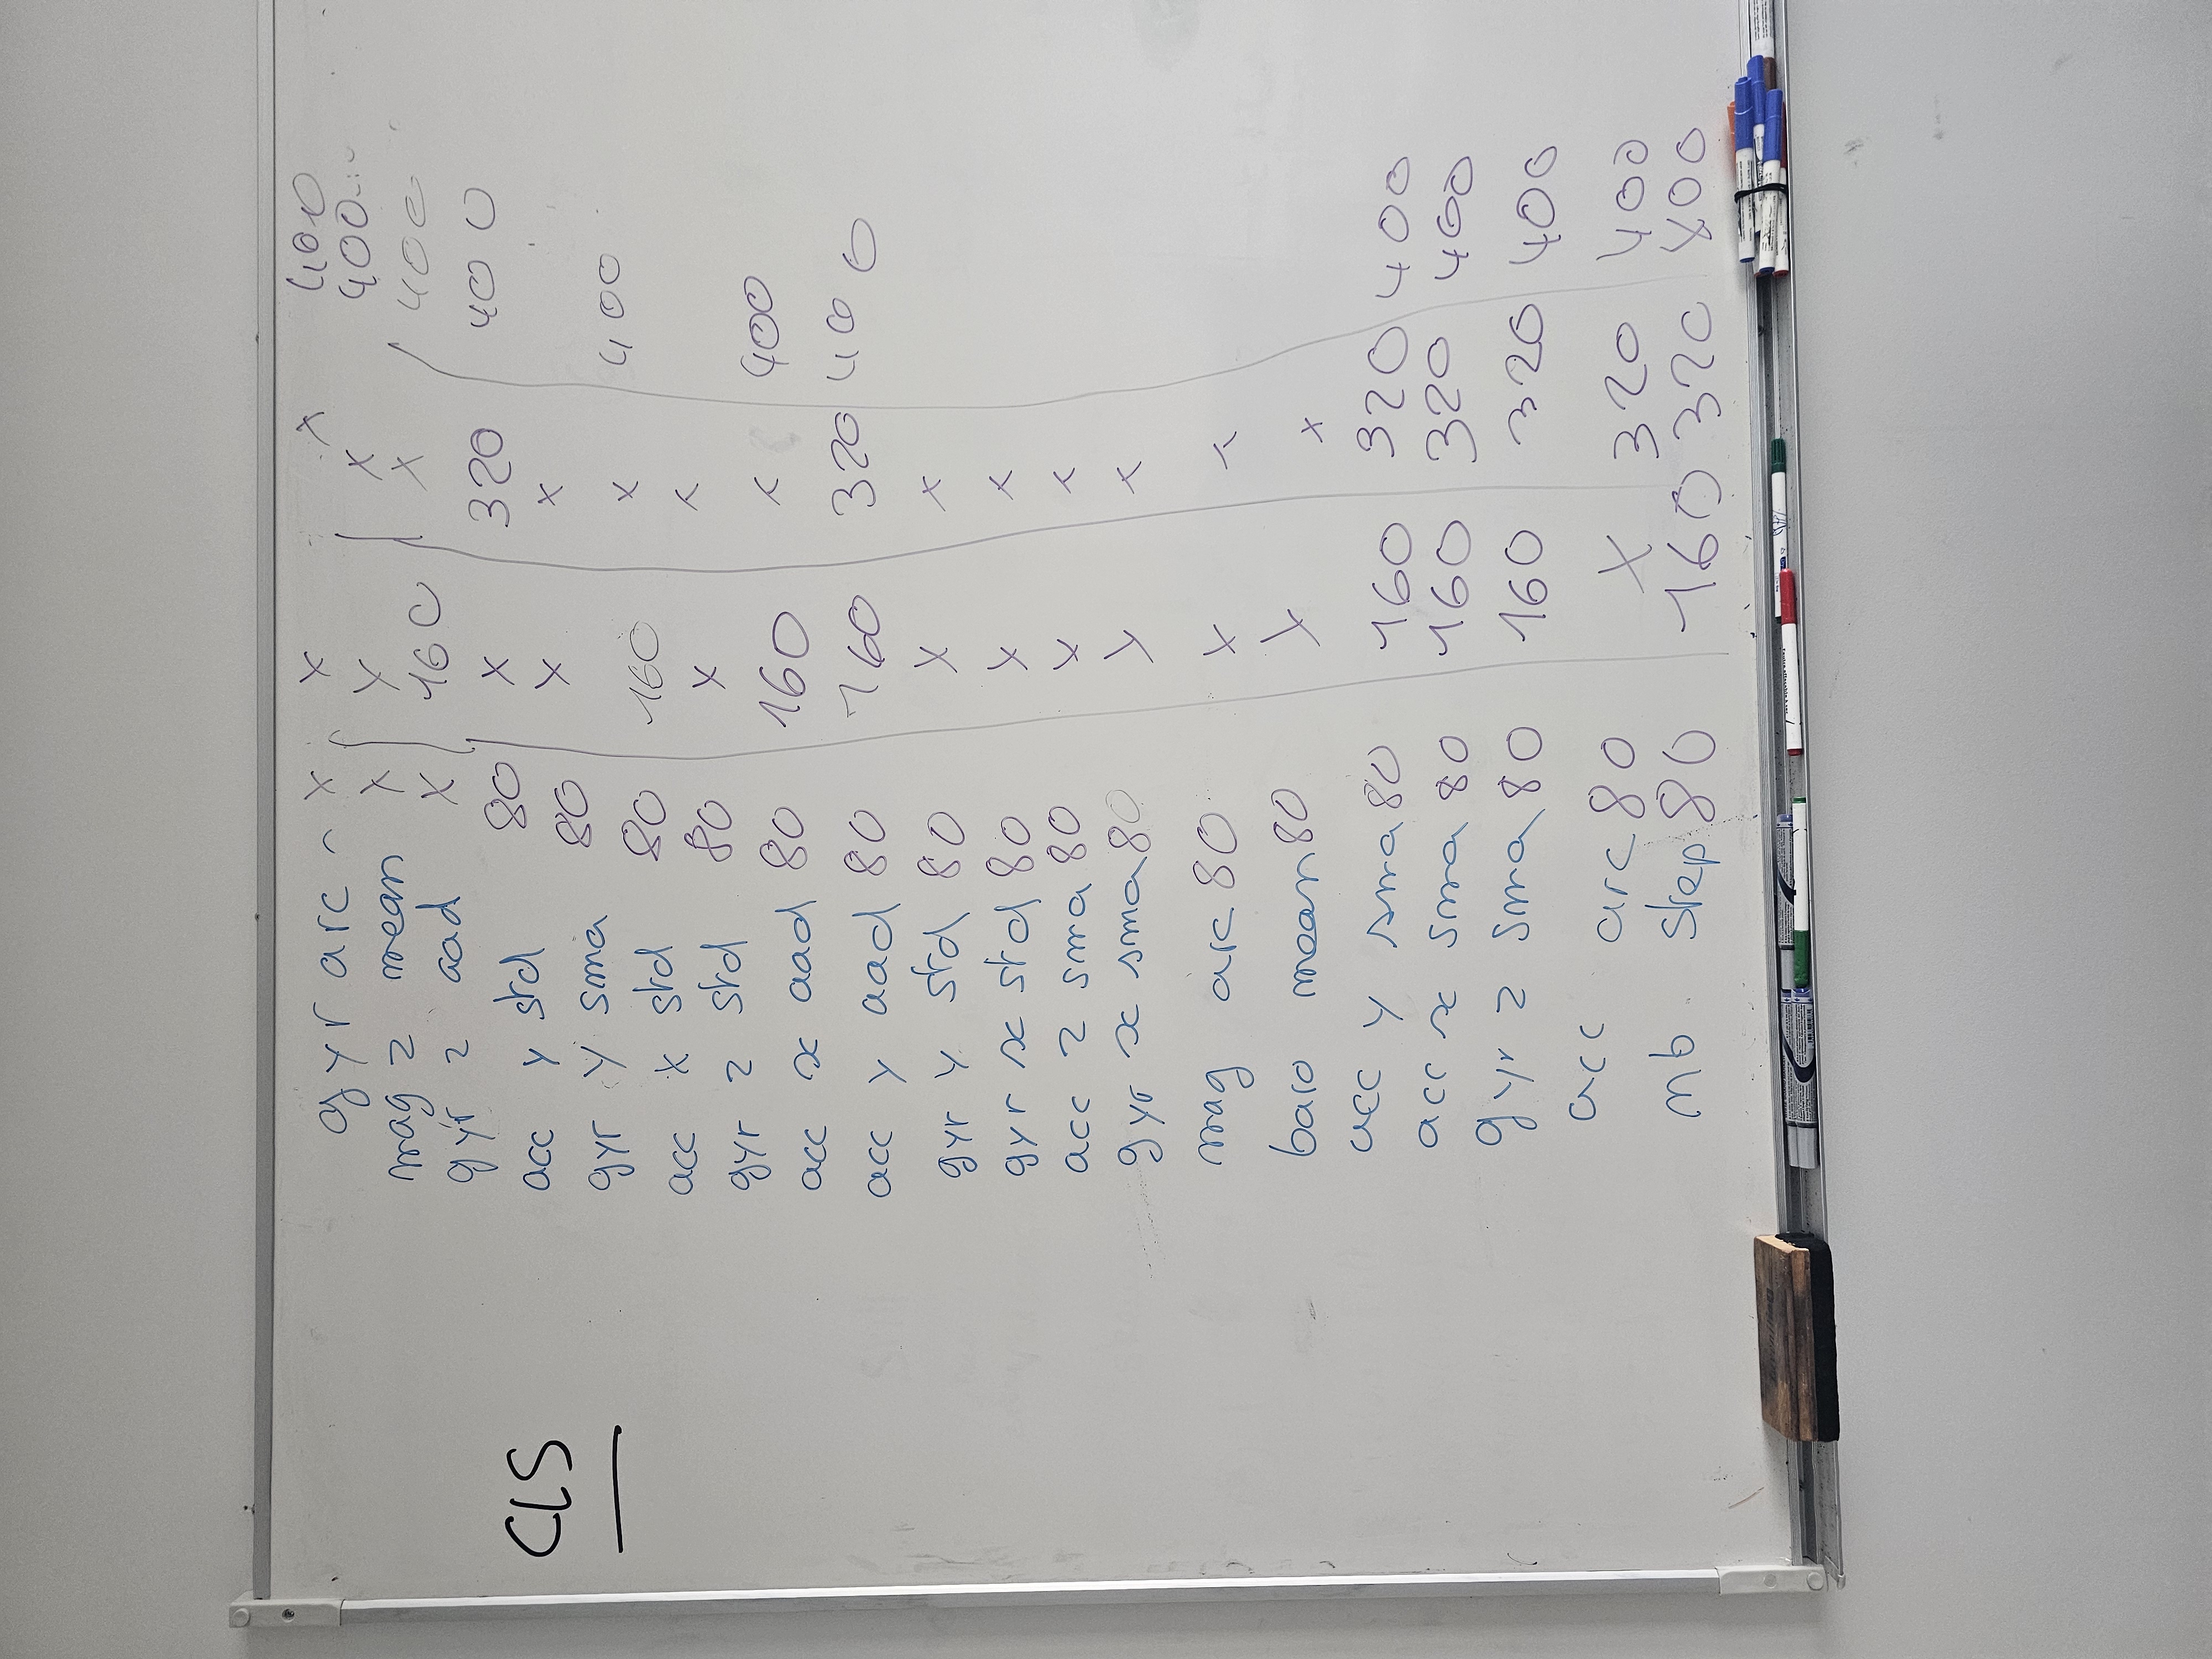 gyr arc - x x x 400
mag z mean x x x 400
gyr z aad x 160 x 400
CLS
acc y std 80 x 320 400
gyr y sma 80 x x
acc x std 80 160 x 400
gyr z std 80 x x
acc x aad 80 160 x 400
acc y aad 80 160 320 400
gyr y std 80 x x
gyr x std 80 x x
acc z sma 80 x x
gyr x sma 80 x x
mag arc 80 x x
baro mean 80 x x
acc y sma 80 160 320 400
acc x sma 80 160 320 400
gyr z sma 80 160 320 400
acc arc 80 x 320 400
nb step 80 160 320 400